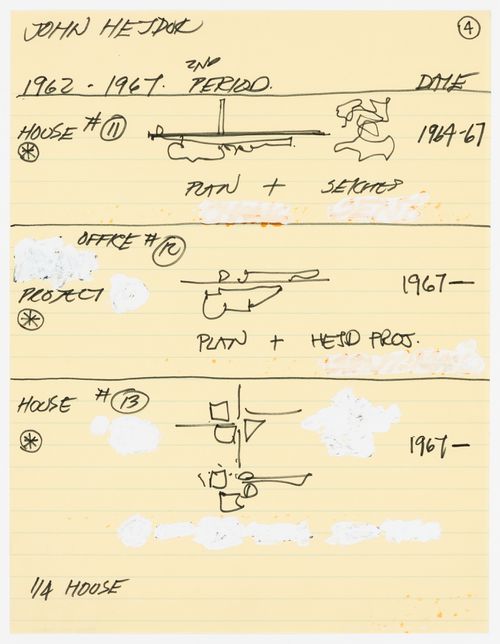 JOHN HEJDUK ④
1962 - 1967. 2ND PERIOD. DATE
HOUSE # ⑪ 1964-67
PLAN + SKETCHES
OFFICE # ⑫
PROJECT 1967—
PLAN + HEJD PROJ.
HOUSE # ⑬
1967—
1/4 HOUSE